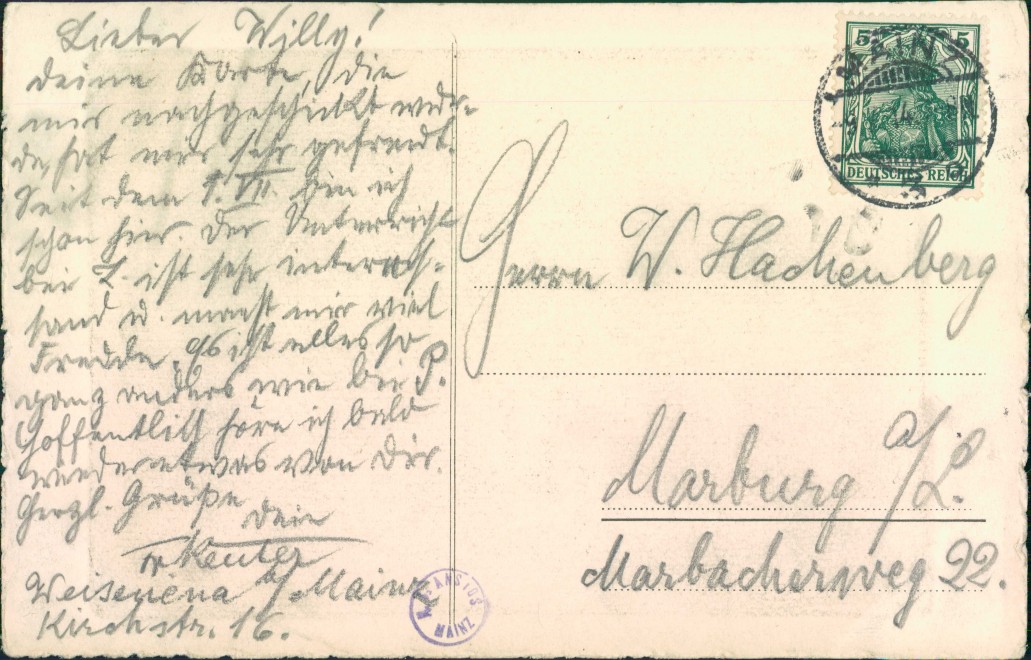 Lieber Willy!
Deine Karte, die
mir nachgeschickt wur-
de, hat mir sehr gefreudt.
Seit dem 1. VII. bin ich
schon hier. Der Unterricht
bei Z. ist sehr interes-
sand u. macht mir viel
Freude. Es ist alles so
ganz anders wie bei P.
Hoffentlich höre ich bald
wieder etwas von Dir.
Herzl. Grüße
Dein
Keuler
Weisenena a/Mainz
Kirchstr. 16.
Herrn W. Hachenberg
Marburg a/L.
Marbacherweg 22.
MAINZ
5 5
DEUTSCHES REICH
MAINZ